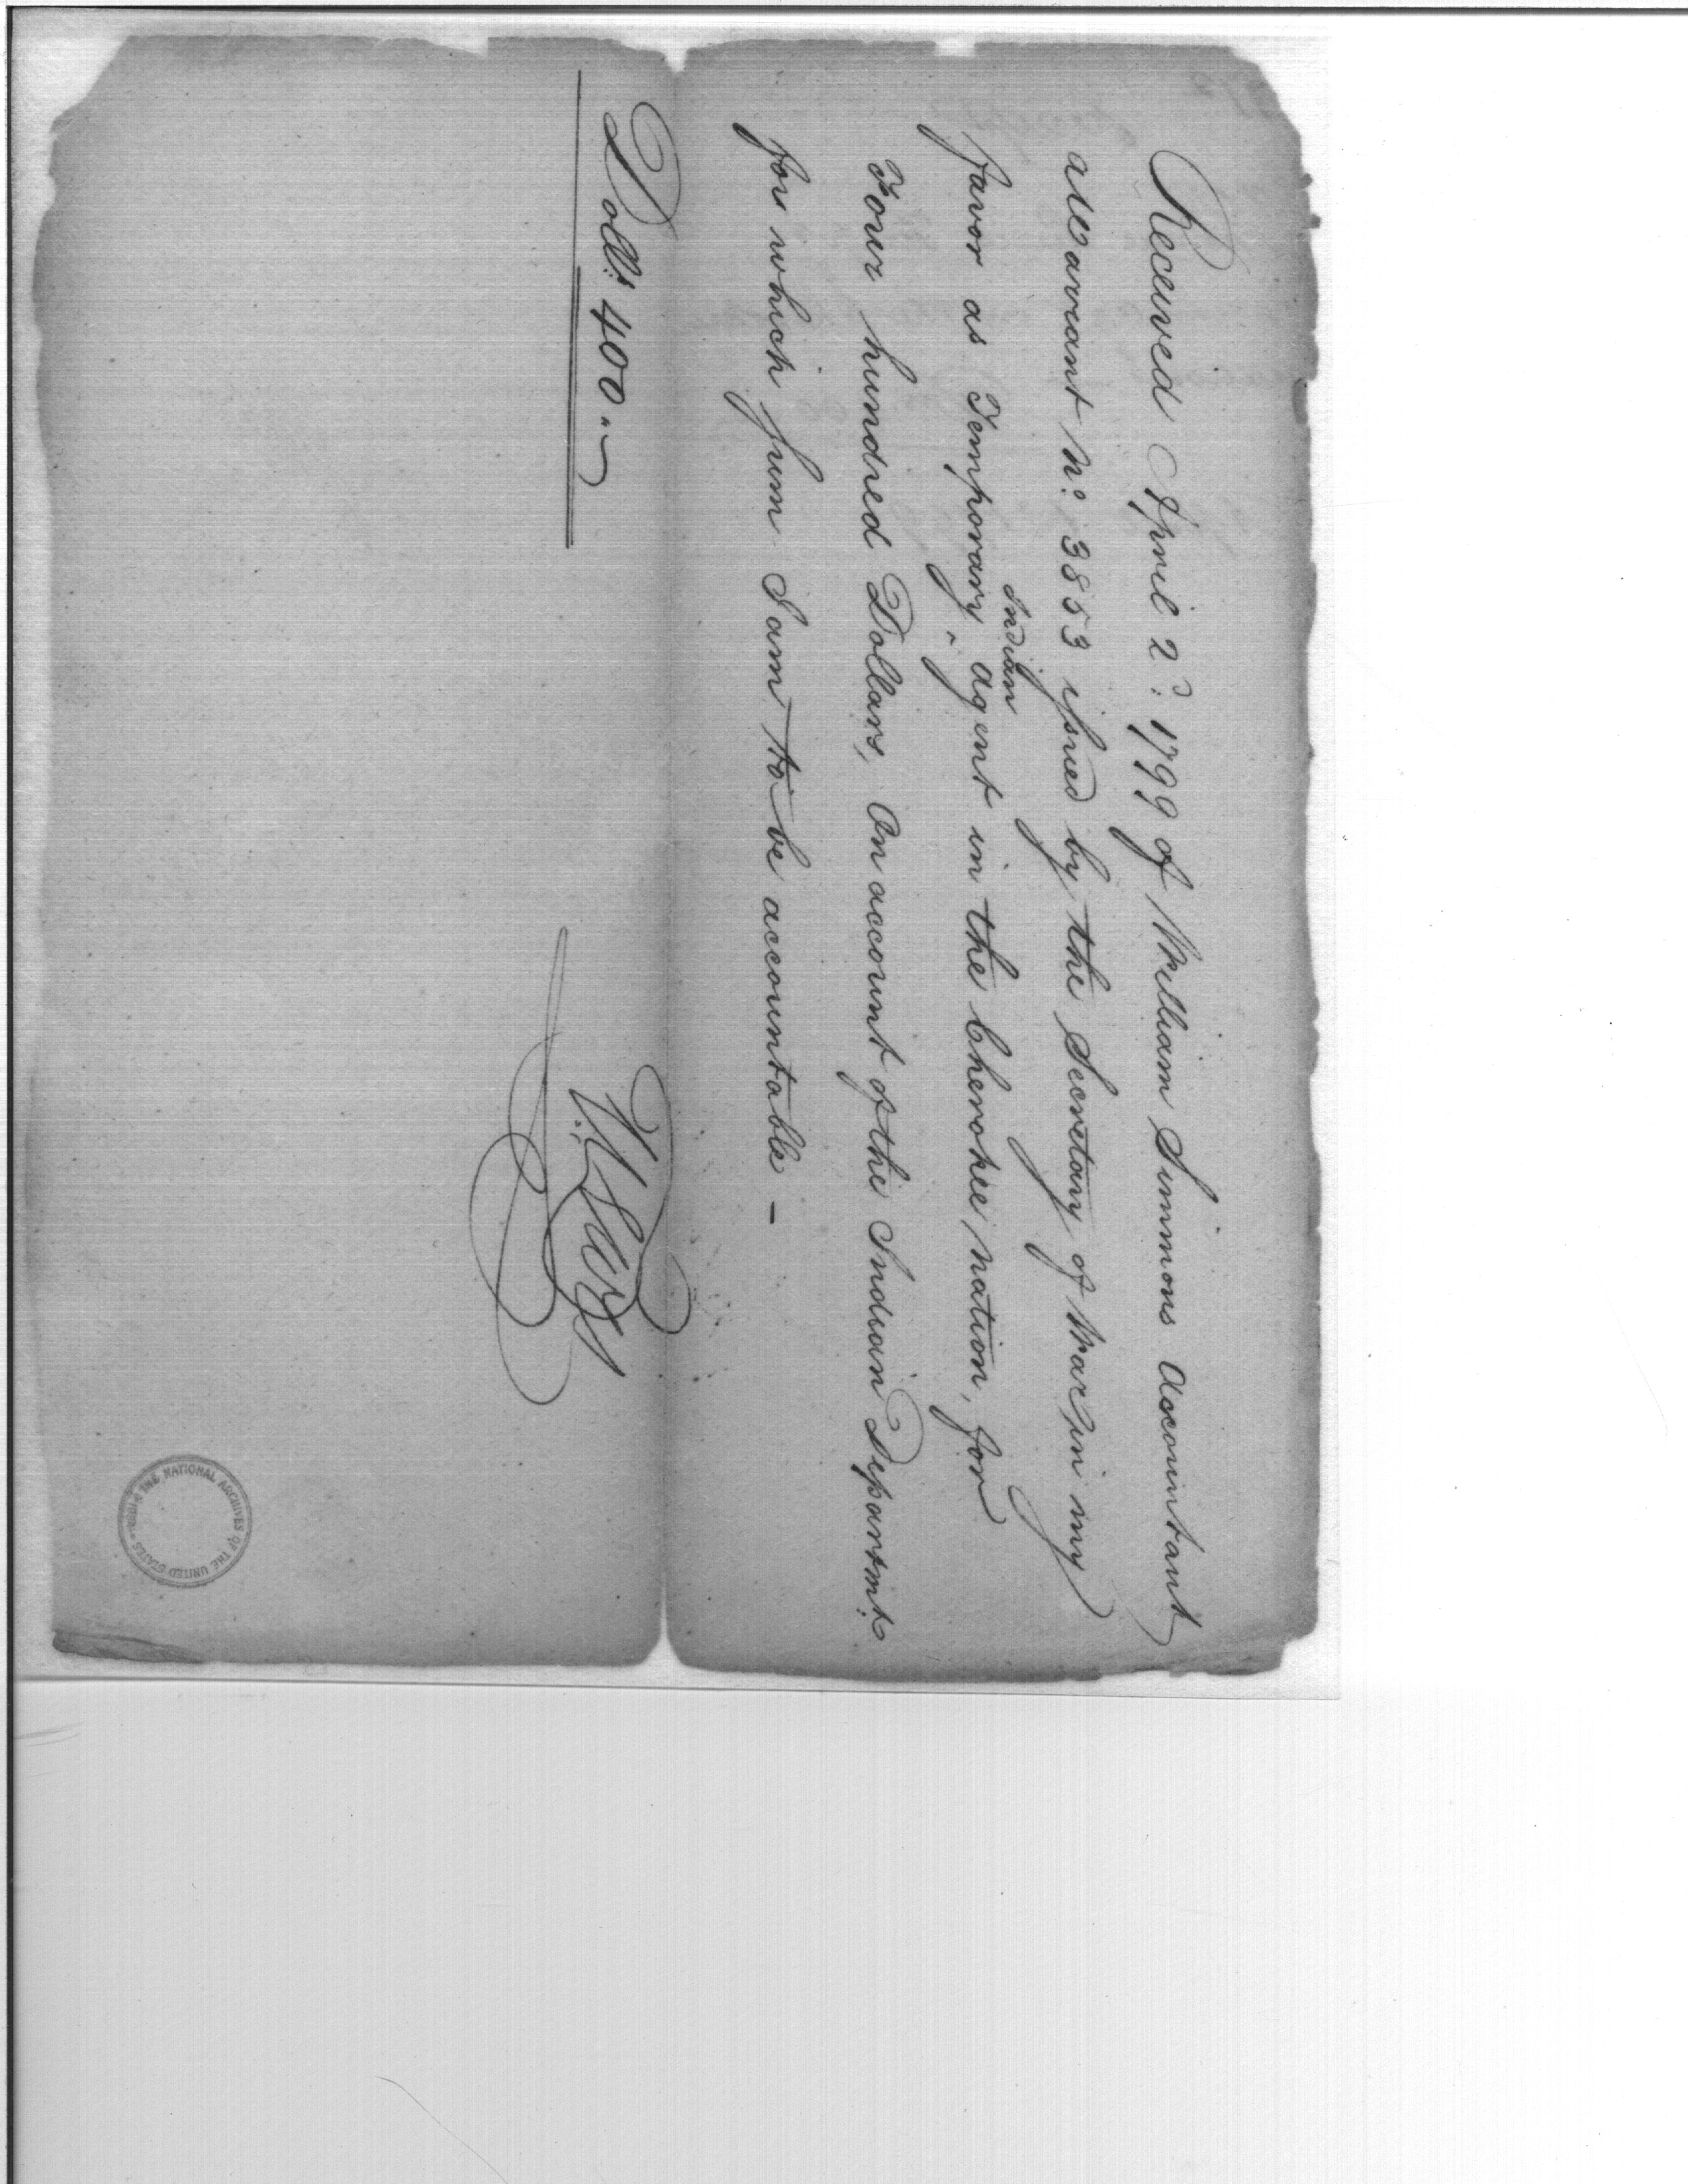 Received April 2d: 1799 of William Simmons Accountant
a Warrant No: 3853 issued by the Secretary of War, in my
Indian
favor as Temporary ^ agent in the Cherokee nation, for
Four hundred Dollars, On account of the Indian Departmt:
for which sum I am to be accountable -
Dolls: 400.~
THE NATIONAL ARCHIVES OF THE UNITED STATES